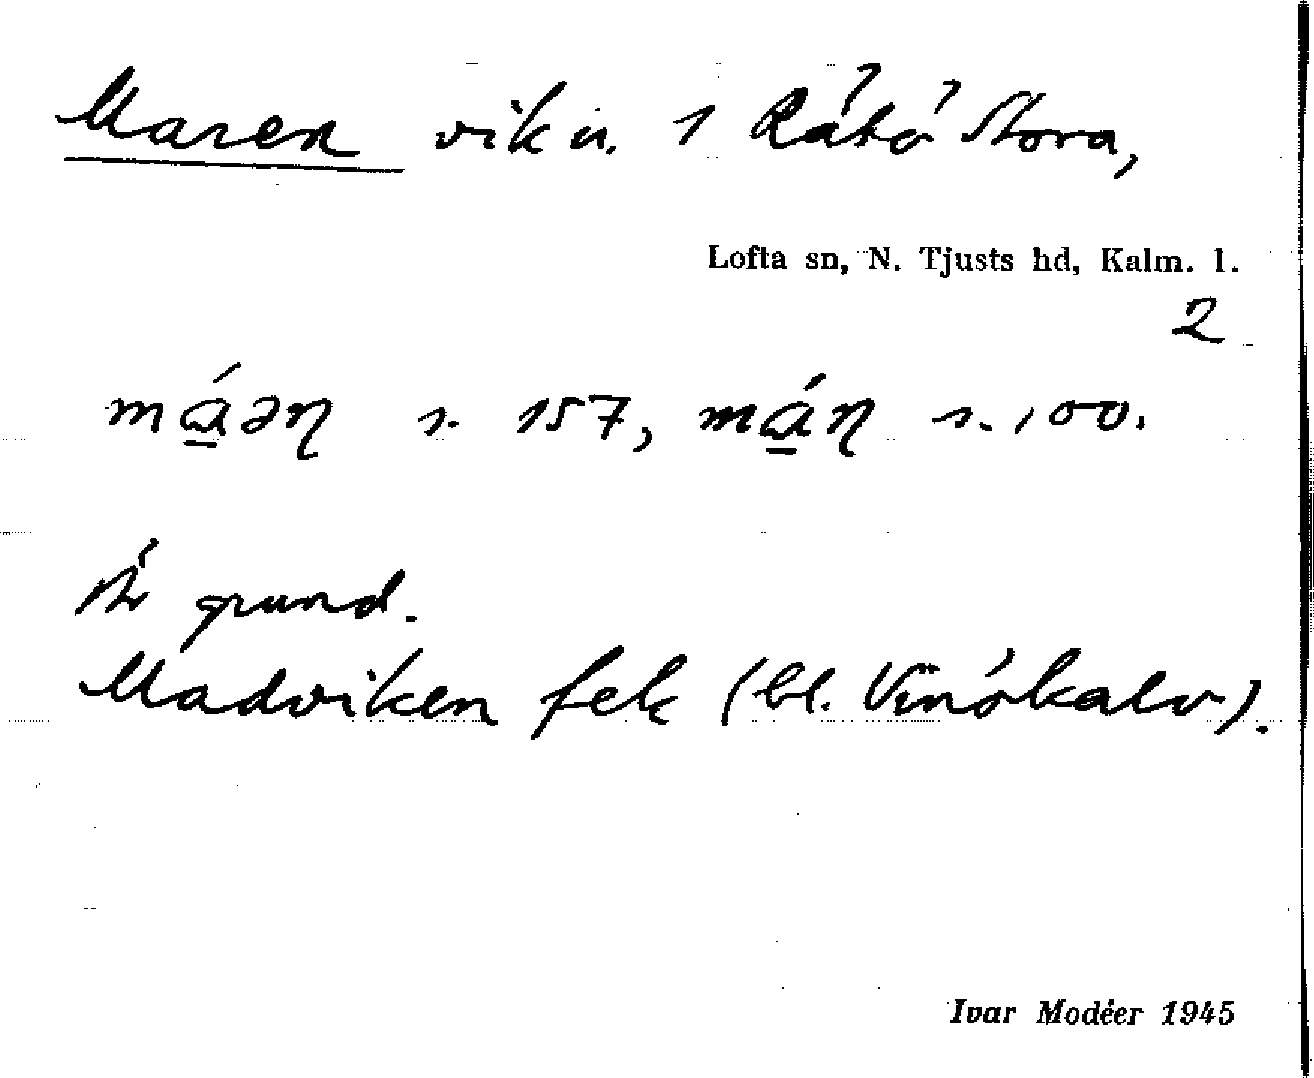 Maren vik n. 1 Råtö Stora,
Lofta sn, N. Tjusts hd, Kalm. l.
2
mɑ̱́əɳ s. 157, mɑ̱́ɳ s. 100.
Är grund.
Madviken fek (bl. Vinökalv).
Ivar Modéer 1945